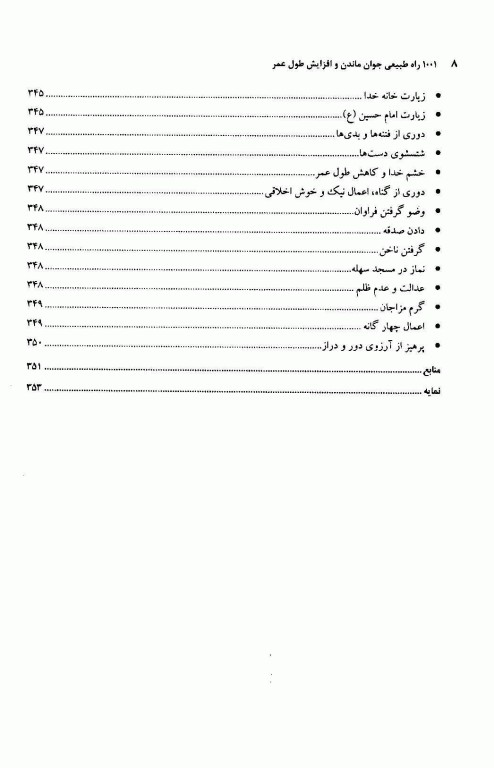 ۸ ۱۰۰۱ راه طبیعی جوان ماندن و افزایش طول عمر
• زیارت خانه خدا ........ ۳۴۵
• زیارت امام حسین (ع) ........ ۳۴۵
• دوری از فتنه‌ها و بدی‌ها ........ ۳۴۷
• شتسشوی دست‌ها ........ ۳۴۷
• خشم خدا و کاهش طول عمر ........ ۳۴۷
• دوری از گناه، اعمال نیک و خوش اخلاقی ........ ۳۴۷
• وضو گرفتن فراوان ........ ۳۴۸
• دادن صدقه ........ ۳۴۸
• گرفتن ناخن ........ ۳۴۸
• نماز در مسجد سهله ........ ۳۴۸
• عدالت و عدم ظلم ........ ۳۴۸
• گرم مزاجان ........ ۳۴۹
• اعمال چهار گانه ........ ۳۴۹
• پرهیز از آرزوی دور و دراز ........ ۳۵۰
منابع ........ ۳۵۱
نمایه ........ ۳۵۳